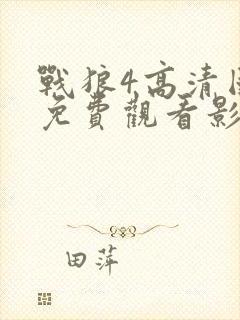 戰狼4高清
免費觀看影
田萍